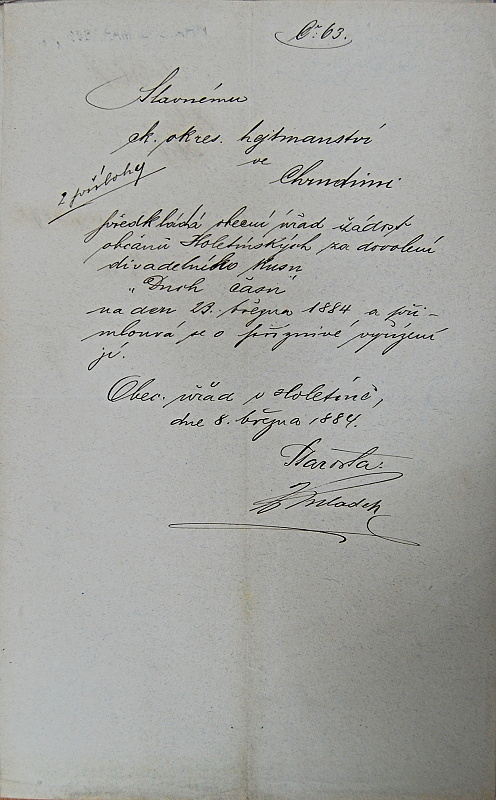 Čís. 63.
Slavnému
ck. okres. hejtmanství
ve
Chrudimi
2 přílohy
předkládá obecní úřad žádost
občanů Holetínských za dovolení
divadelního kusu
„Duch času"
na den 23. března 1884 a při-
mlouvá se o příznivé vyřízení
jí.
Obec. úřad v Holetíně,
dne 8. března 1884.
Starosta.